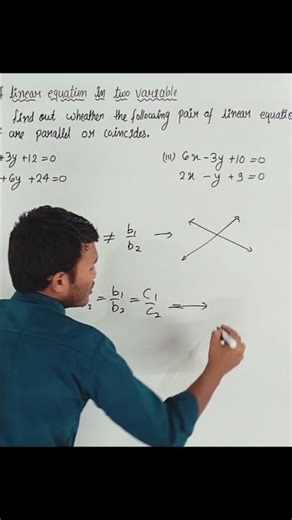 linear equation in two variable
find out wheather the following pair of linear equatio
are parallel or coincides.
+3y+12=0
+6y+24=0
(iii) 6x-3y+10=0
2x-y+9=0
≠ b₁/b₂ →
= b₁/b₂ = C₁/C₂ ⇒